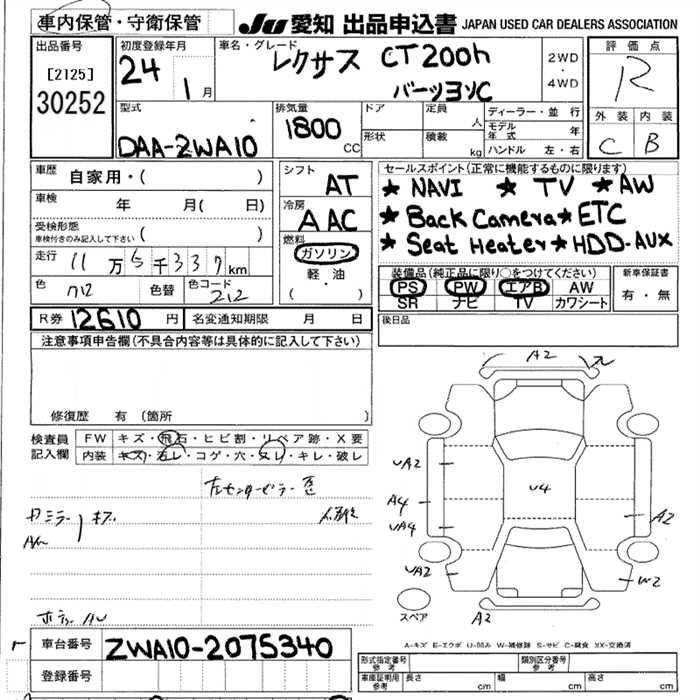 車内保管・守衛保管
JU 愛知 出品申込書 JAPAN USED CAR DEALERS ASSOCIATION
出品番号
[2125]
30252
初度登録年月
24 1 月
車名・グレード
レクサス CT200h
バージョンC
2WD
・
4WD
評価点
R
外装 内装
C B
型式
DAA-ZWA10
排気量
1800 CC
ドア
形状
定員 人
積載 kg
ディーラー・並行
モデル年式 年
ハンドル 左・右
車歴
自家用・( )
車検 年 月( 日)
受検形態
車検付きのみ記入して下さい ( )
走行 11万5千337km
色 212 色替 色コード 212
シフト
AT
冷房
AAC
燃料
ガソリン
軽・油
( )
セールスポイント(正常に機能するものに限ります)
★ NAVI ★ TV ★ AW
★ Back Camera ★ ETC
★ Seat Heater ★ HDD-AUX
装備品(純正品に限り○をつけてください)
PS PW エアB AW
SR ナビ TV カワシート
新車保証書
有・無
R券 12610 円 名変通知期限 月 日
後日品
注意事項申告欄(不具合内容等は具体的に記入して下さい)
修復歴 有(箇所 )
検査員
記入欄
FW キズ・飛石・ヒビ割・リペア跡・X要
内装 キズ・汚レ・コゲ・穴・スレ・キレ・破レ
左センターピラー
ミラー キズ
AW
A2
UA2
U4
A4
UA4
A2
UA2
W2
スペア
A2
A-キズ E-エクボ U-凹み W-補修跡 S-サビ C-腐食 XX-交換済
車台番号 ZWA10-2075340
登録番号
形式指定番号
参考
類別区分番号
参考
車庫証明用
参考
長さ cm 幅 cm 高さ cm